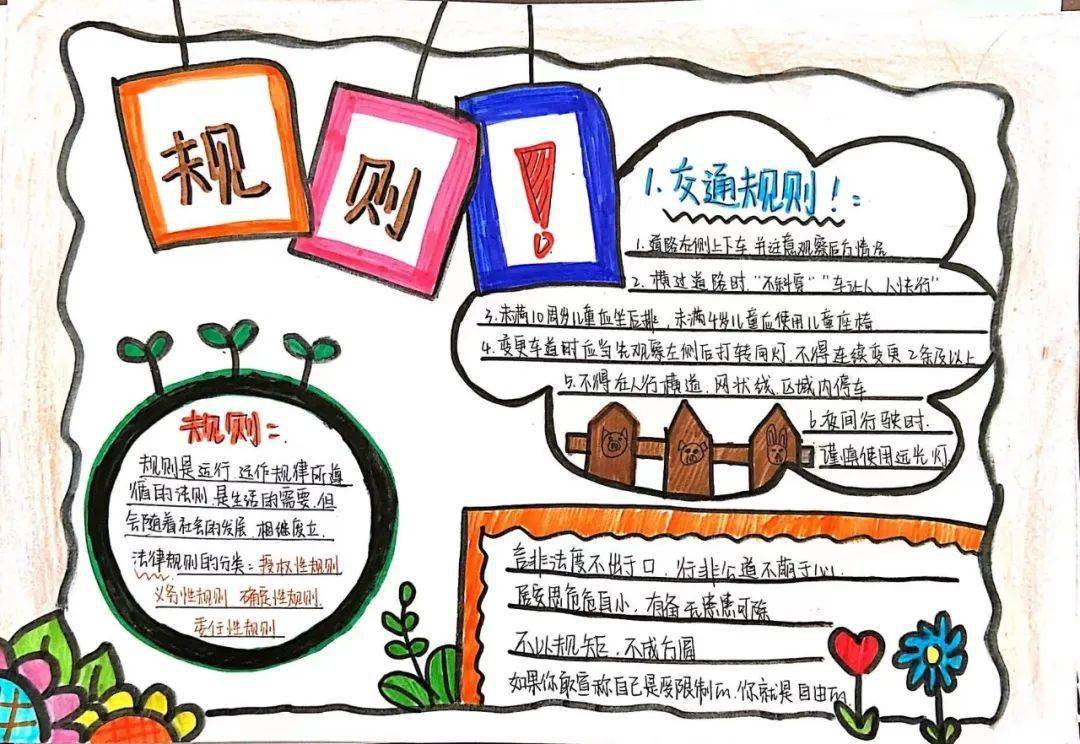 规则!
1.交通规则!:
1.道路左侧上下车并注意观察后方情况
2.横过道路时,"不斜穿""车让人,人快行"
3.未满10周岁儿童应坐后排,未满4岁儿童应使用儿童座椅
4.变更车道时应当先观察左侧后打转向灯,不得连续变更2条及以上
5.不得在人行横道,网状线,区域内停车
6.夜间行驶时.
谨慎使用远光灯
规则:
规则是运行 运作规律所遵
循的法则.是生活的需要.但
会随着社会的发展,相继废立.
法律规则的分类:授权性规则
义务性规则 确定性规则.
委任性规则
言非法度不出于口,行非公道不萌于心.
居安思危危自小,有备无患患可除
不以规矩,不成方圆
如果你敢宣称自己是受限制的,你就是自由的